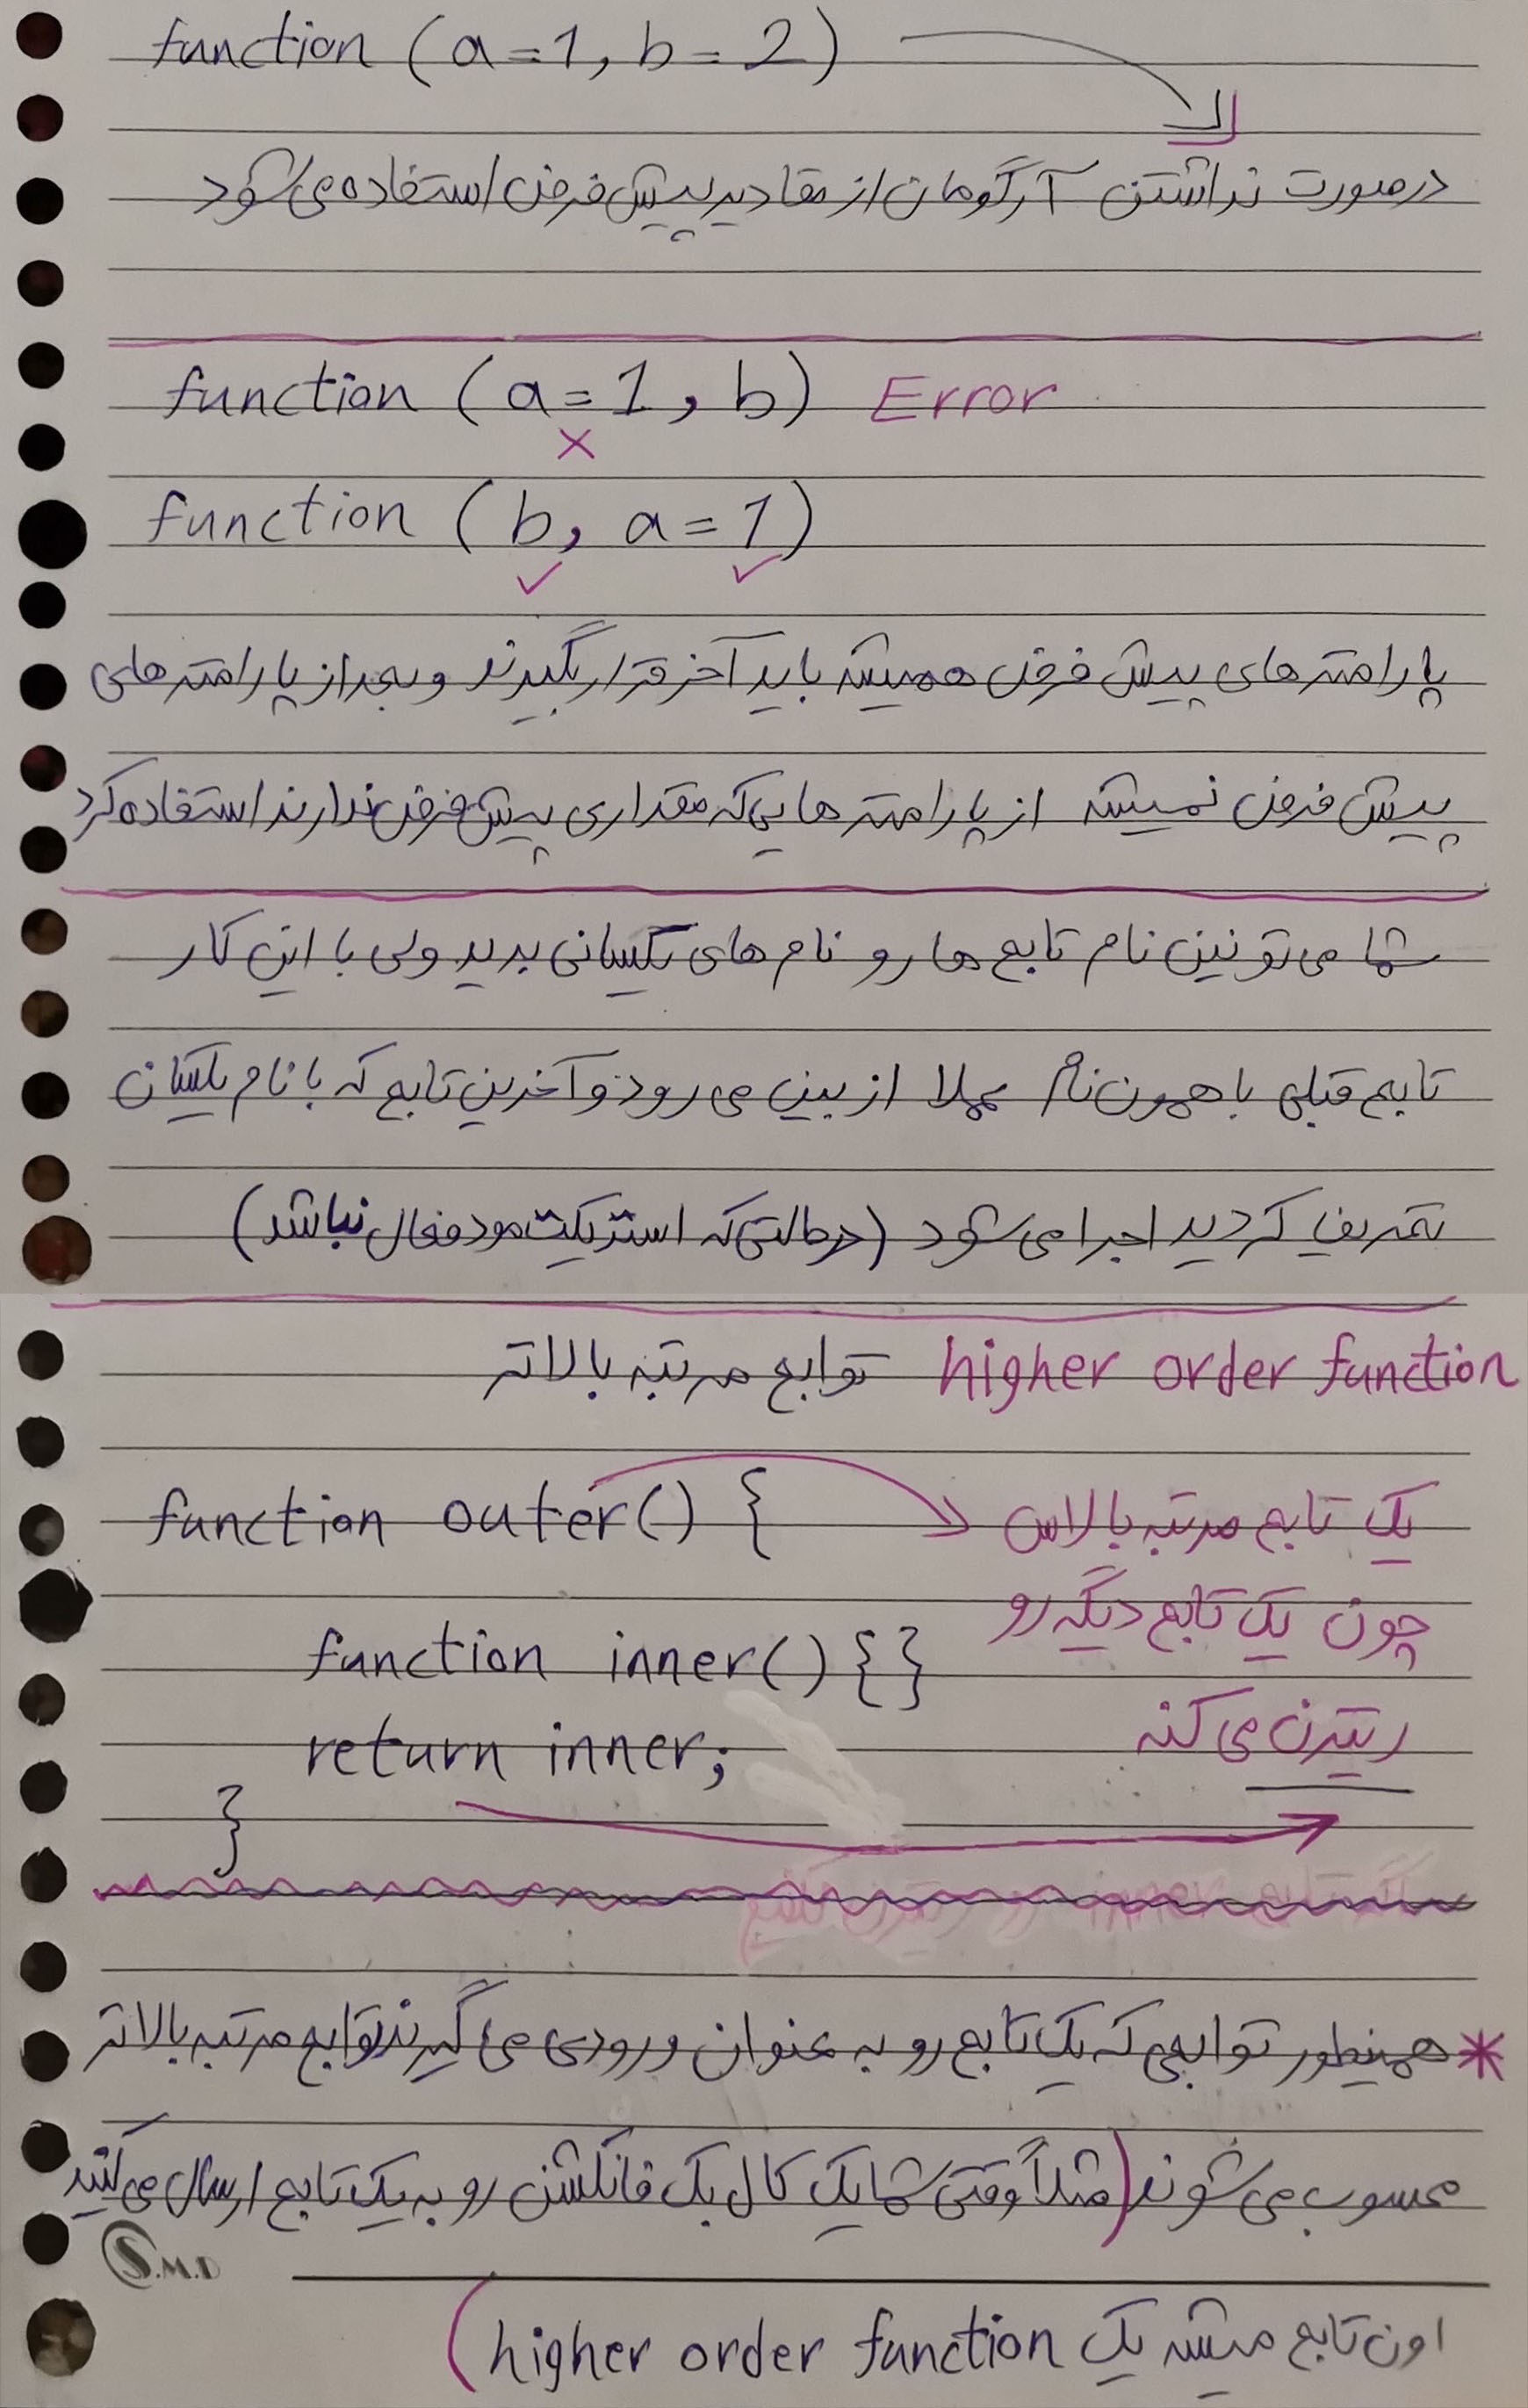 function (a=1, b=2)
درصورت نداشتن آرگومان از مقادیر پیش فرض استفاده می شود
function (a=1, b) Error
function (b, a=1)
پارامتر های پیش فرض همیشه باید آخر قرار بگیرند و بعد از پارامتر های
پیش فرض نمیشه از پارامتر هایی که مقداری پیش فرض ندارند استفاده کرد
شما می تونین نام تابع ها رو نام های یکسانی بدید ولی با این کار
تابع قبلی با همون نام عملا از بین می رود و آخرین تابع که با نام یکسان
تعریف کردید اجرا می شود (درحالتی که استریکت مود فعال نباشد)
higher order function توابع مرتبه بالاتر
function outer() {
یک تابع مرتبه بالاس
چون یک تابع دیگه رو
function inner() {}
ریترن می کنه
return inner;
}
* همینطور توابعی که یک تابع رو به عنوان ورودی می گیرند توابع مرتبه بالاتر
محسوب می شوند (مثلاً وقتی شما یک کال بک فانکشن رو به یک تابع ارسال می کنید
S.M.D
اون تابع میشه یک higher order function)